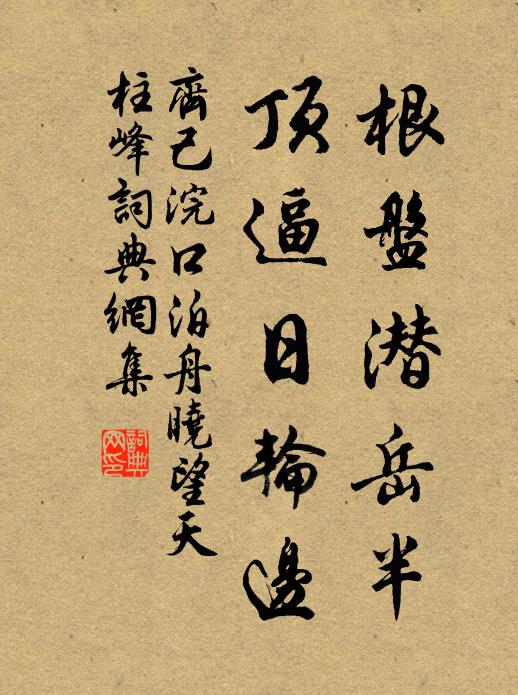 根盤潜岳半
頂逼日輪邊
齊己浣口泊舟曉望天
柱峰詞典網集
詞典網印